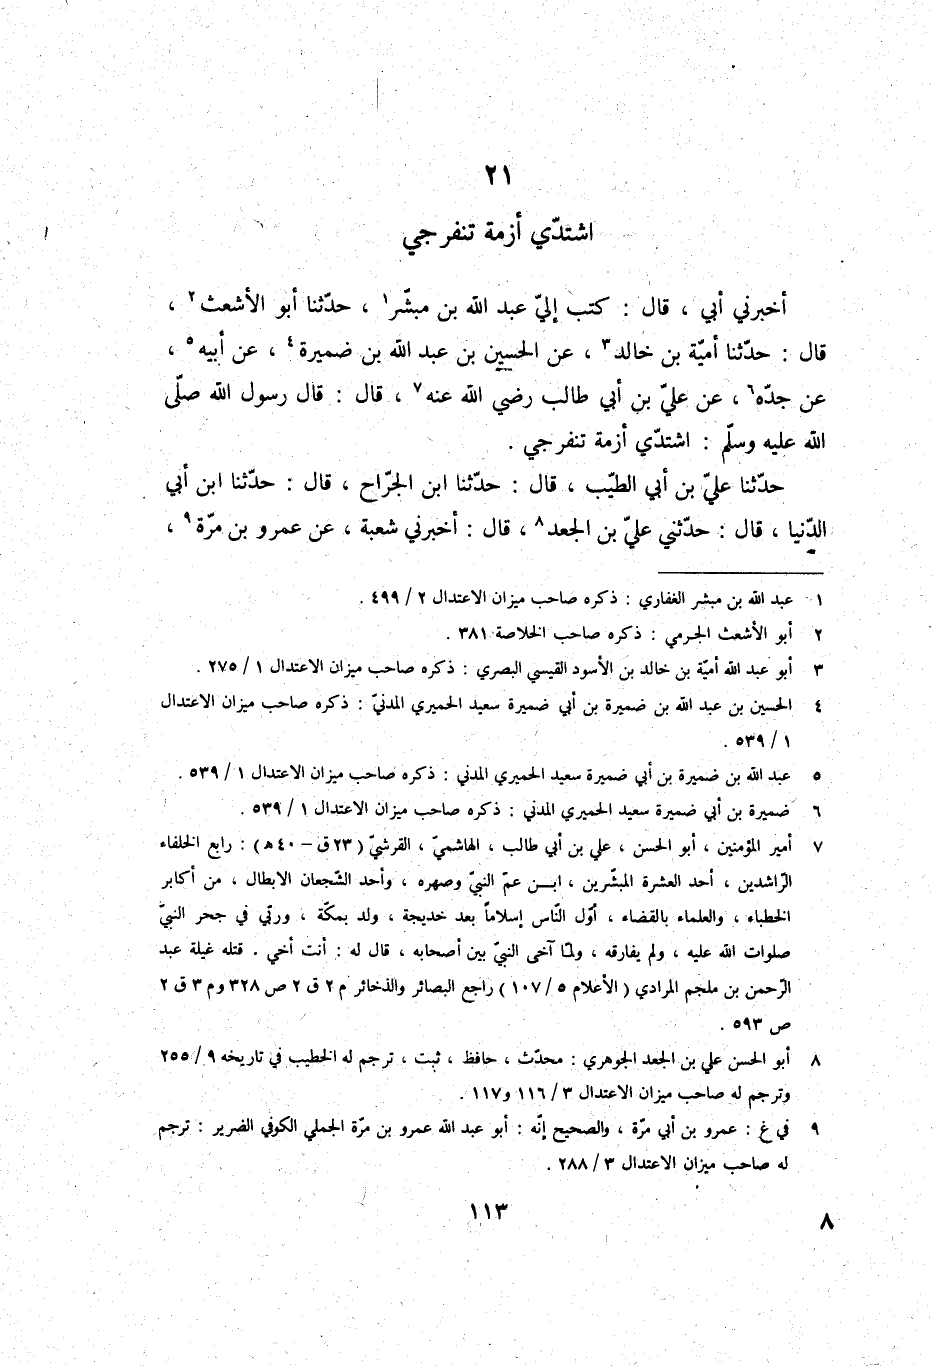 ٢١
اشتدّي أزمة تنفرجي
أخبرني أبي ، قال : كتب إليّ عبد الله بن مبشّر١ ، حدّثنا أبو الأشعث٢ ،
قال : حدّثنا أميّة بن خالد٣ ، عن الحسين بن عبد الله بن ضميرة٤ ، عن أبيه٥ ،
عن جدّه٦ ، عن عليّ بن أبي طالب رضي الله عنه٧ ، قال : قال رسول الله صلّى
الله عليه وسلّم : اشتدّي أزمة تنفرجي .
حدّثنا عليّ بن أبي الطيّب ، قال : حدّثنا ابن الجرّاح ، قال : حدّثنا ابن أبي
الدّنيا ، قال : حدّثني عليّ بن الجعد٨ ، قال : أخبرني شعبة ، عن عمرو بن مرّة٩ ،
١ عبد الله بن مبشر الغفاري : ذكره صاحب ميزان الاعتدال ٢ / ٤٩٩ .
٢ أبو الأشعث الجرمي : ذكره صاحب الخلاصة ٣٨١ .
٣ أبو عبد الله أميّة بن خالد بن الأسود القيسي البصري : ذكره صاحب ميزان الاعتدال ١ / ٢٧٥ .
٤ الحسين بن عبد الله بن ضميرة بن أبي ضميرة سعيد الحميري المدنيّ : ذكره صاحب ميزان الاعتدال
١ / ٥٣٩ .
٥ عبد الله بن ضميرة بن أبي ضميرة سعيد الحميري المدني : ذكره صاحب ميزان الاعتدال ١ / ٥٣٩ .
٦ ضميرة بن أبي ضميرة سعيد الحميري المدني : ذكره صاحب ميزان الاعتدال ١ / ٥٣٩ .
٧ أمير المؤمنين ، أبو الحسن ، علي بن أبي طالب ، الهاشميّ ، القرشيّ ( ٢٣ق – ٤٠ﻫ ) : رابع الخلفاء
الرّاشدين ، أحد العشرة المبشّرين ، ابـن عمّ النبيّ وصهره ، وأحد الشّجعان الابطال ، من أكابر
الخطباء ، والعلماء بالقضاء ، أوّل النّاس إسلاماً بعد خديجة ، ولد بمكّة ، وربّي في جحر النبيّ
صلوات الله عليه ، ولم يفارقه ، ولمّا آخى النبيّ بين أصحابه ، قال له : أنت أخي . قتله غيلة عبد
الرّحمن بن ملجم المرادي ( الأعلام ٥ / ١٠٧ ) راجع البصائر والذخائر م ٢ ق ٢ ص ٣٢٨ و م ٣ ق ٢
ص ٥٩٣ .
٨ أبو الحسن علي بن الجعد الجوهري : محدّث ، حافظ ، ثبت ، ترجم له الخطيب في تاريخه ٩ / ٢٥٥
وترجم له صاحب ميزان الاعتدال ٣ / ١١٦ و١١٧ .
٩ في غ : عمرو بن أبي مرّة ، والصحيح إنّه : أبو عبد الله عمرو بن مرّة الجملي الكوفي الضرير : ترجم
له صاحب ميزان الاعتدال ٣ / ٢٨٨ .
١١٣
٨